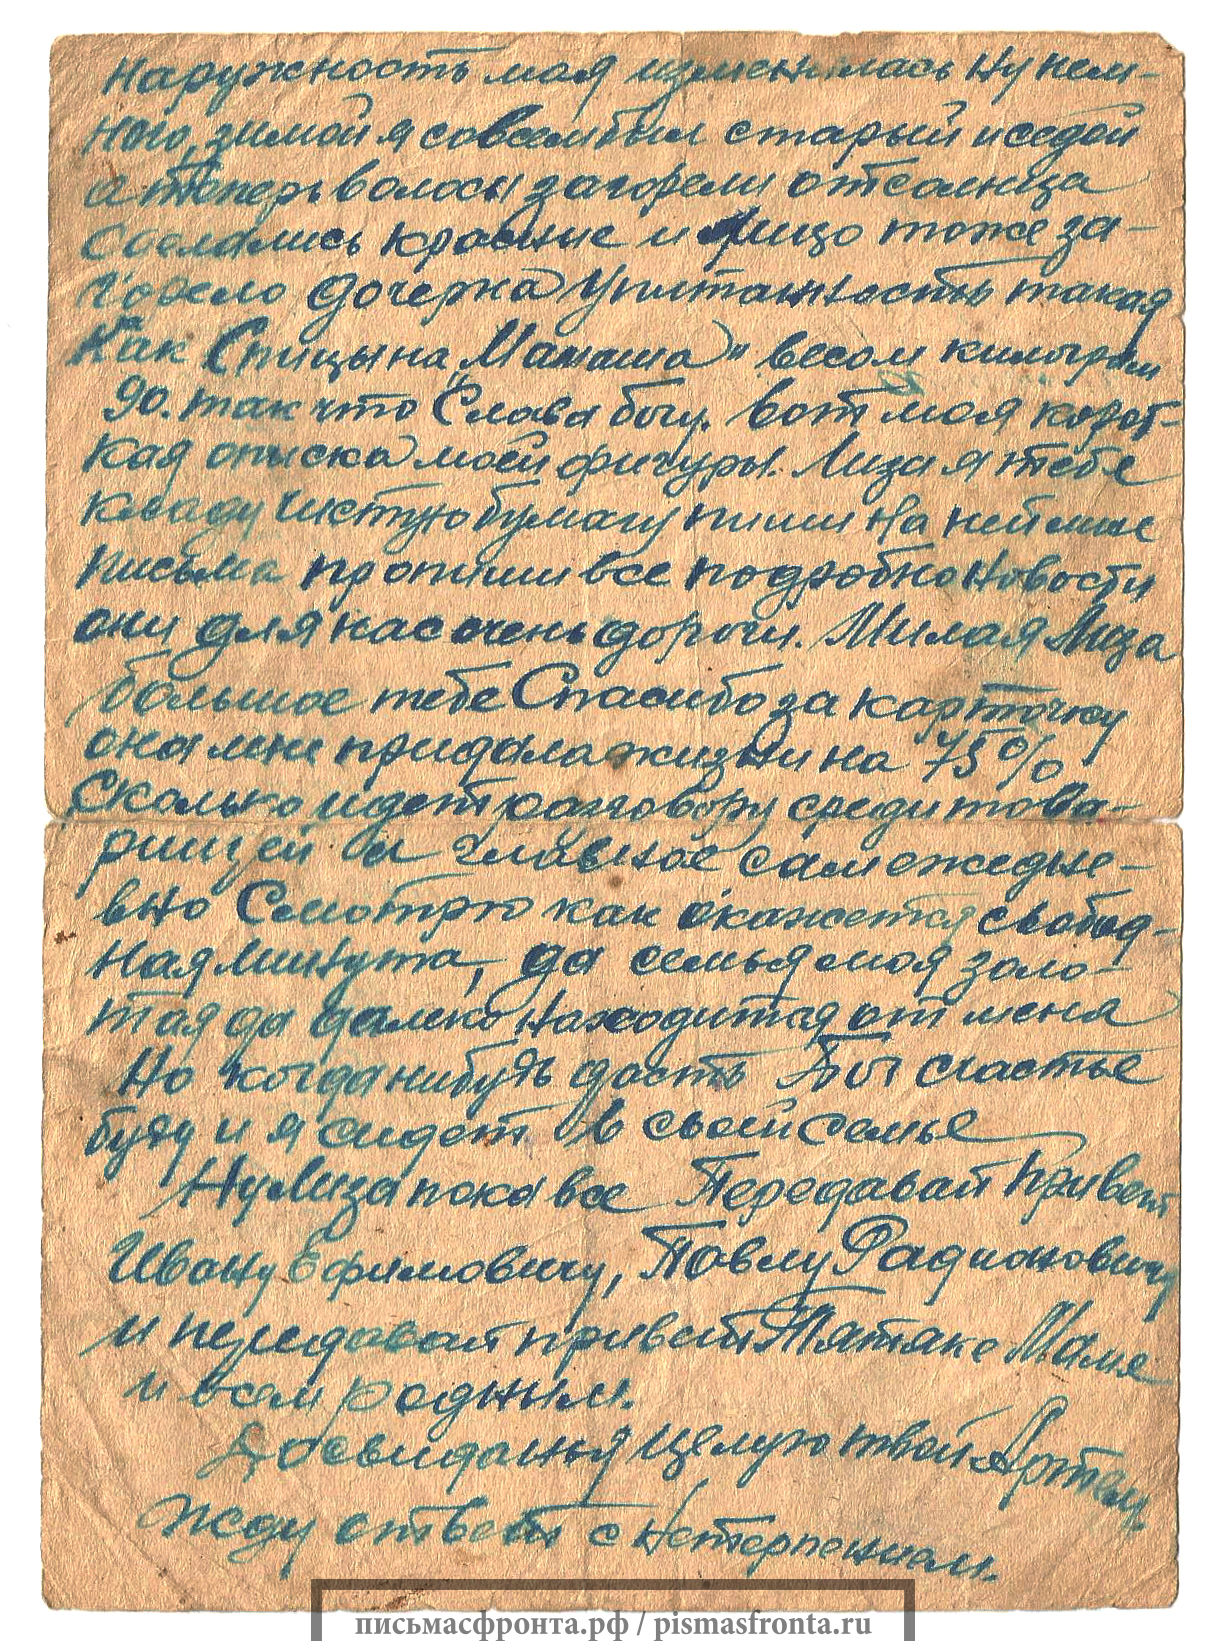 Наружность моя изменилась ну нем-
ного, зимой я совсем был старый и седой
а теперь волосы загорели от солнца
сделались красные и лицо тоже за-
горело дочерна упитанность такая
как Спицына „Мамаша" весом килограм
90. так что Слава богу. вот моя корот-
кая описка моей фигуры. Лиза я тебе
кладу чистую бумагу пиши на ней мне
письма пропиши все подробно новости
они для нас очень дороги. Милая Лиза
большое тебе Спасибо за карточку
она мне придала жизни на 75%
Сколько идет разговору среди това-
рищей а главное сам ежедне-
вно Смотрю как окажется свобод-
ная минута, да семья моя золо-
тая да далеко находится от меня
Но когда нибудь дасть Бог счастье
буду и я сидет в своей семье
Ну Лиза пока все Передавай привет
Ивану Ефимовичу, Павлу Радионовичу
и передавай привет Тятяке Маме
и всем родным.
Досвиданья Целую твой Артем.
Жду ответ с нетерпением.
письмасфронта.рф / pismasfronta.ru